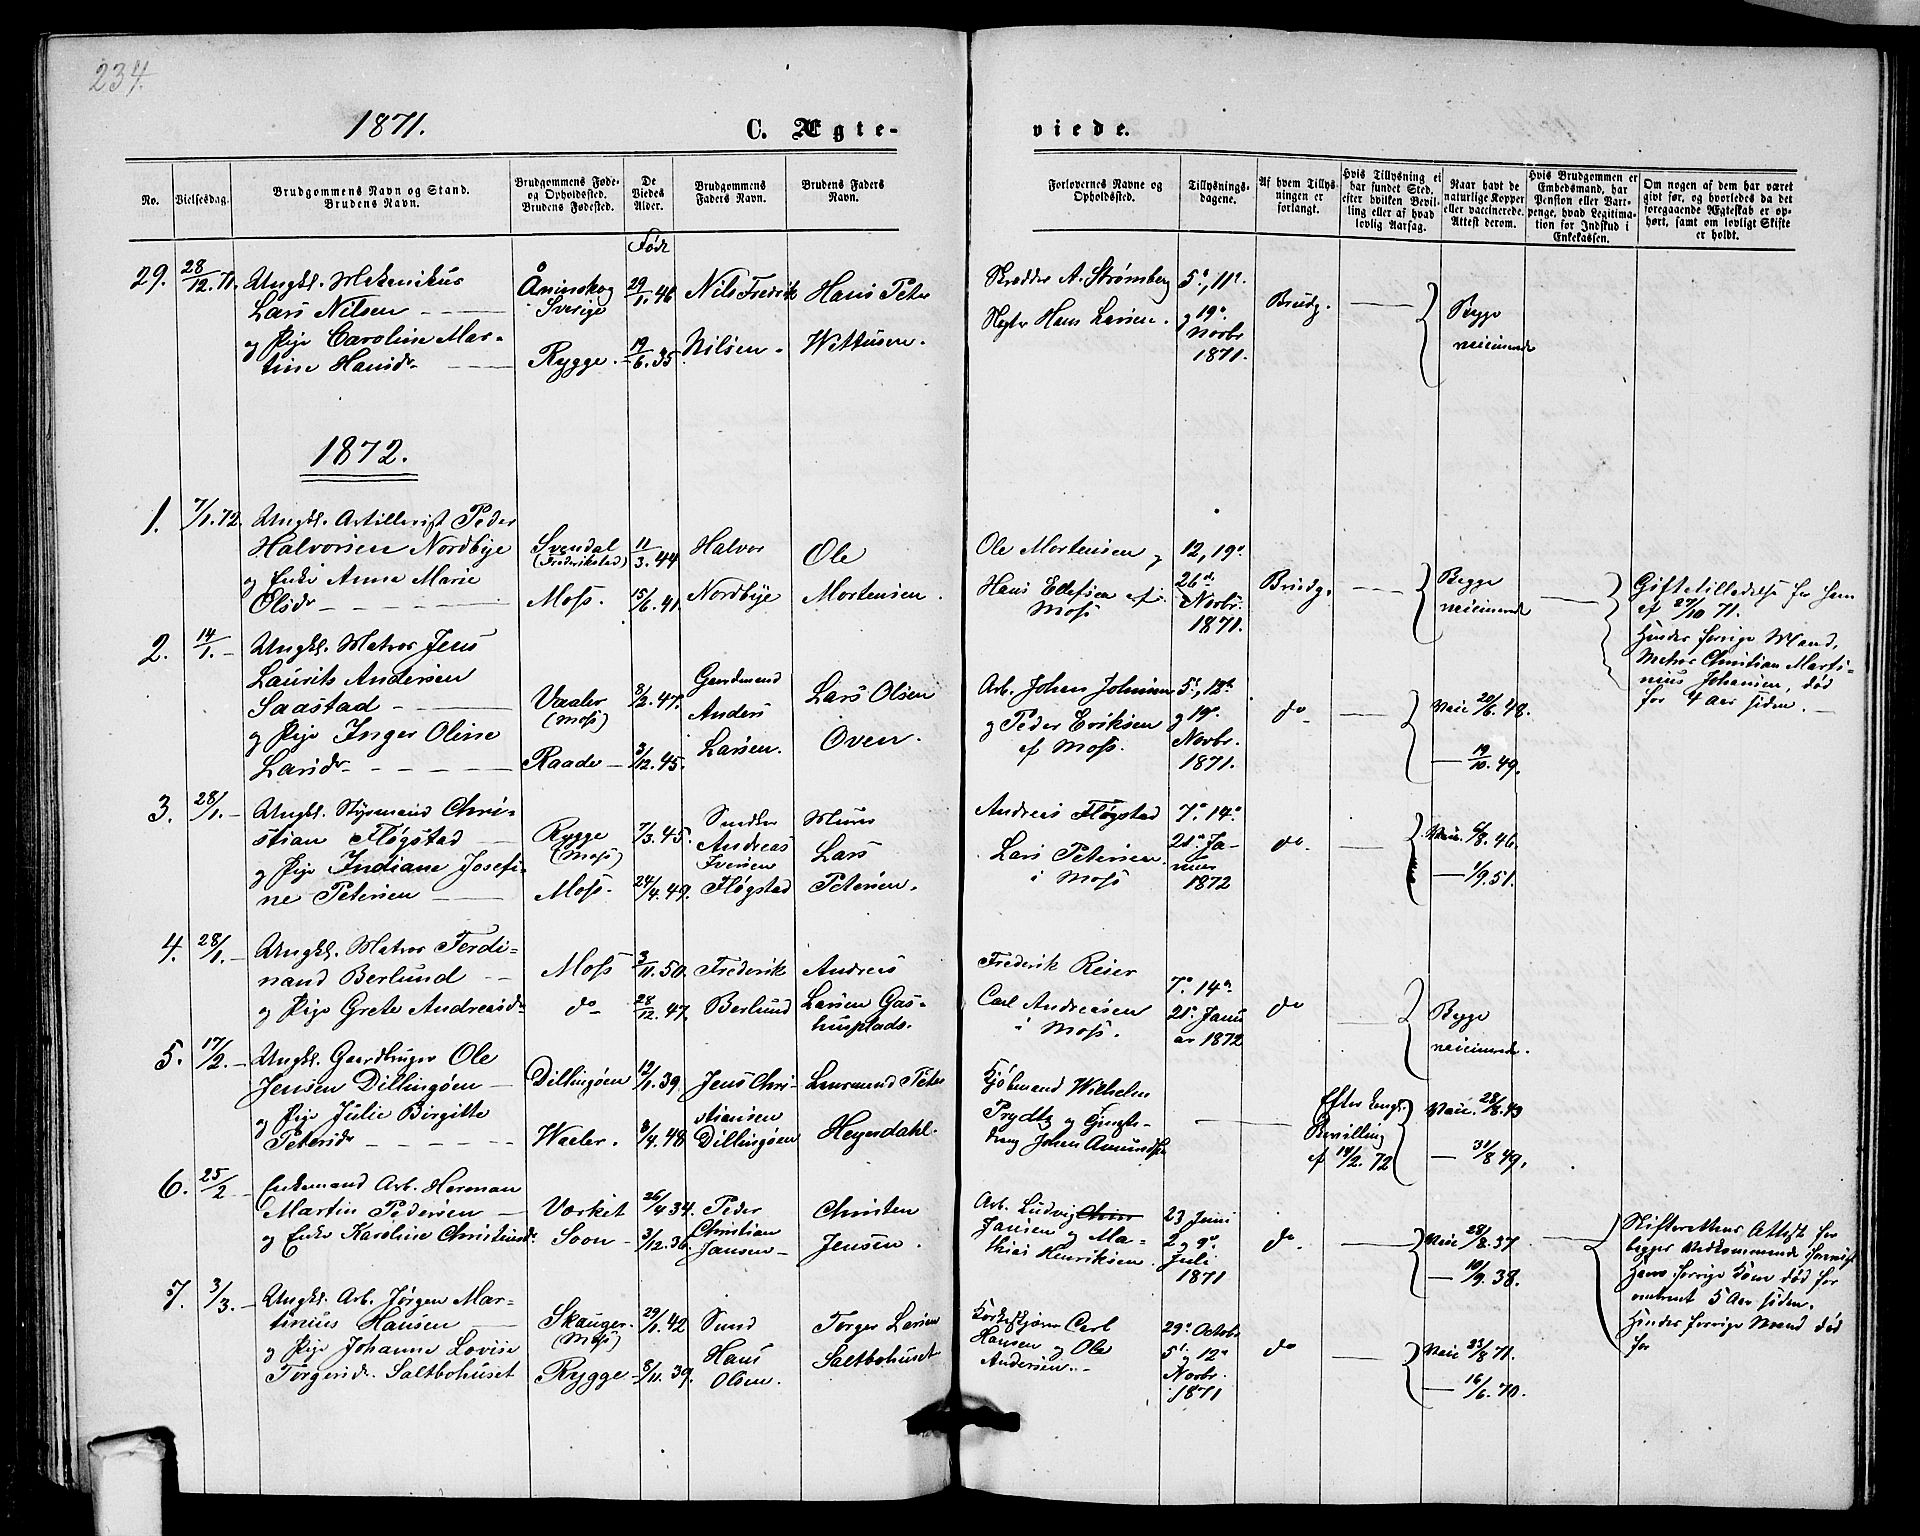 234.
1871.
C. Ægte-
viede.
No.
Vielsesdag.
Brudgommens Navn og Stand.
Brudens Navn.
Brudgommens Føde-
og Opholdssted.
Brudens Fødested.
De
Viedes
Alder.
Brudgommens
Faders Navn.
Brudens Faders
Navn.
Forlovernes Navne og
Opholdssted.
Tillysnings-
dagene.
Af hvem Tillys-
ningen er
forlangt.
Hvis Tillysning ei
har fundet Sted,
efter hvilken Bevil-
ling eller af hvad
lovlig Aarsag.
Naar havt de
naturlige Kopper
eller vaccinerede.
Attest derom.
Hvis Brudgommen er
Embedsmand, har
Pension eller Vart-
penge, hvad Legitima-
tion for Indskud i
Enkekassen.
Om nogen af dem har været
givt før, og hvorledes da det
foregaaende Ægteskab er op-
hørt, samt om lovligt Skifte
er holdt.
Født
29. 28/12.71. Ungkl. Mekanikus Åninskog 29/1.46 Nils Fredrik Hans Peter Skrædder A. Strømberg 5te, 11te
Lars Nilsen Sverige Hans Larsen. og 19de Brudg. Begge
og Pige Caroline Mar- Novbr. vaccinerede
tine Hansdr Rygge. 19/6.35 Nilsen Wittusen. 1871.
1872.
1. 7/1.72. Ungkl. Artillerist Peder
Halvorsen Nordbye Svendal 11/3.44 Halvor Ole Ole Mortensen og 12, 19de
(Frederikstad)
og Enke Anne Marie Hans Ellefsen af 26de Brudg. Begge Giftetilladelse for ham
Olsdr Moss. 15/6.41. Nordbye Mortensen. Moss Novbr. vaccinerede af 27/10 71.
1871. Hendes forrige Mand,
2. 14/1. Ungkl. Matros Jens Matros Christian Marti-
Laurits Andersen Gaardmand nius Johansen, død
Saastad Vaaler 8/2.47. Anders Lars Olsen Arb. Johan Johnsen 5te, 12te do Vacc 20/6.48. for 4 Aar siden.
(Moss) og Peder Eriksen og 19de
og Pige Inger Oline Larsen. Oven. af Moss. Novbr.
Larsdr Raade 3/12.45. 1871. 19/10.49.
3. 28/1. Ungkl. Styrmand Chri- Murer Andreas Fløgstad 7de 14de
stian Fløgstad Rygge 7/3.45. Andreas Lars 21de Ja- do Vacc. 6/8.46.
(Moss) Iversen Lars Petersen nuar
og Pige Indiane Josefi- i Moss 1872 1/9.51.
ne Petersen Moss. 24/4.49. Fløgstad Petersen.
4. 28/1. Ungkl. Matros Ferdi- Frederik Reier
nand Berlund Moss 3/11.50. Frederik Andreas 7de 14de
og Pige Grete Andreasdr do 28/12.47. Berlund Larsen Gas- Carl Andreasen 21de Janu do Begge
husplads. i Moss. ar 1872 vaccinerede.
5. 17/2. Ungkl. Gaardbruger Ole
Jensen Dillingøen Dillingøen 12/1.39 Jens Chri- Lensmand Peter Kjøbmand Wilhelm Efter kongl. Vacc. 28/8.43
og Pige Julie Birgitte stiansen Prydtz og Bevilling
Petersdr Waaler. 3/4.48 Dillingøen Heyerdahl. dreng Johan Amundsen af 14/2.72 31/8 49.
6. 25/2 Enkemand Arb. Herman
Martin Pedersen Værket 26/4 34. Peder Christen Arb. Ludvig 23 Juni Skifterettens Attest for
og Enke Karoline Christensdr. Soon 3/12.36. Christian Jansen og Ma- 2 og 9de do Vacc 28/8.37. begges Vedkommende forevist
Jansen Jensen. thias Henriksen. Juli Hans forrige Kone død for
1871 10/9.38. omtrent 5 Aar siden.
7. 3/3. Ungkl. Arb. Jørgen Mar- Hendes forrige Mand død
tinius Hansen Skauger. 29/1.42 Torger Larsen Carl 29de Octobr for
(Moss)
og Pige Johanne Lovise Hans Hansen og Ole 5te og 12te do Vacc 23/8 71.
Torgersdr. Saltbohuset Rygge 8/11.39. Olsen. Saltbohuset Andersen. Novbr.
1871 16/6.70.